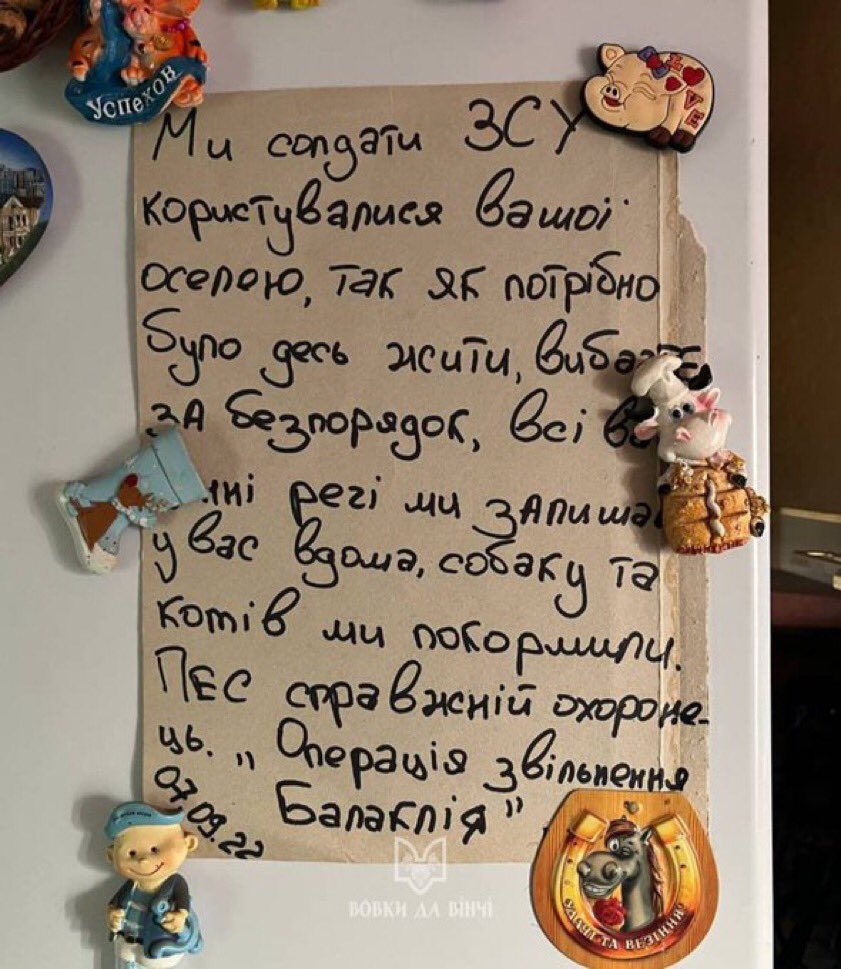 Успехов
LOVE
Ми солдати ЗСУ
користувалися вашої
оселею, так як потрібно
було десь жити, вибачте
за безпорядок, всі
речі ми
у вас вдома, собаку та
котів ми покормили.
Пес справжній охороне-
ць. „Операція звільнення
Балаклія"
07.09.22
ВОВКИ ДА ВІНЧІ
УДАЧІ ТА ВЕЗІННЯ!